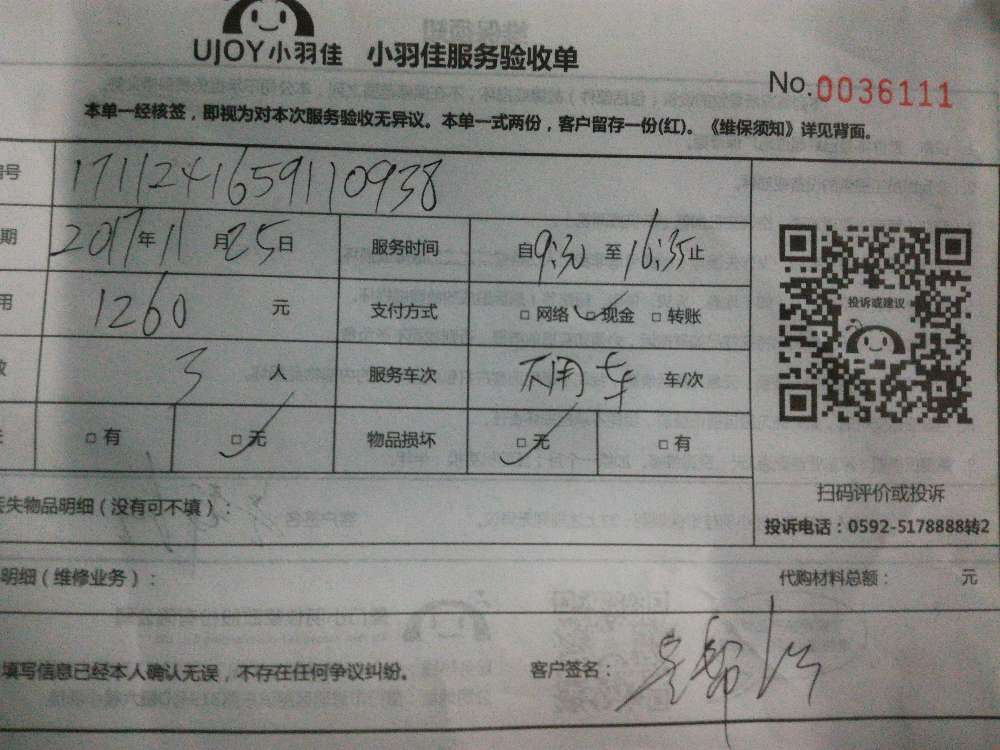 UJOY小羽佳 小羽佳服务验收单
No.0036111
本单一经核签，即视为对本次服务验收无异议。本单一式两份，客户留存一份(红)。《维保须知》详见背面。
号 1711241659110938
期 2017年11月25日 服务时间 自9:30至16:35止
用 1260 元 支付方式 □ 网络 现金 □ 转账
投诉或建议
3 人 服务车次 不用车 车/次
□ 有 □ 无 物品损坏 □ 无 □ 有
扫码评价或投诉
丢失物品明细（没有可不填）：
投诉电话：0592-5178888转2
明细（维修业务）： 代购材料总额： 元
填写信息已经本人确认无误，不存在任何争议纠纷。 客户签名：